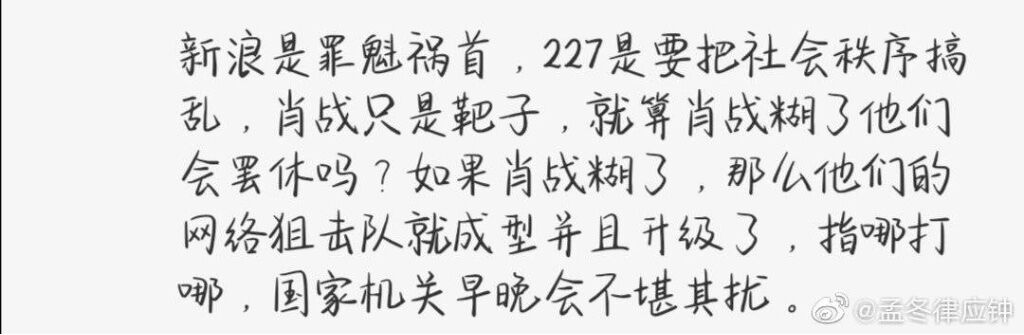 新浪是罪魁祸首，227是要把社会秩序搞
乱，肖战只是靶子，就算肖战糊了他们
会罢休吗？如果肖战糊了，那么他们的
网络狙击队就成型并且升级了，指哪打
哪，国家机关早晚会不堪其扰。
@孟冬律应钟